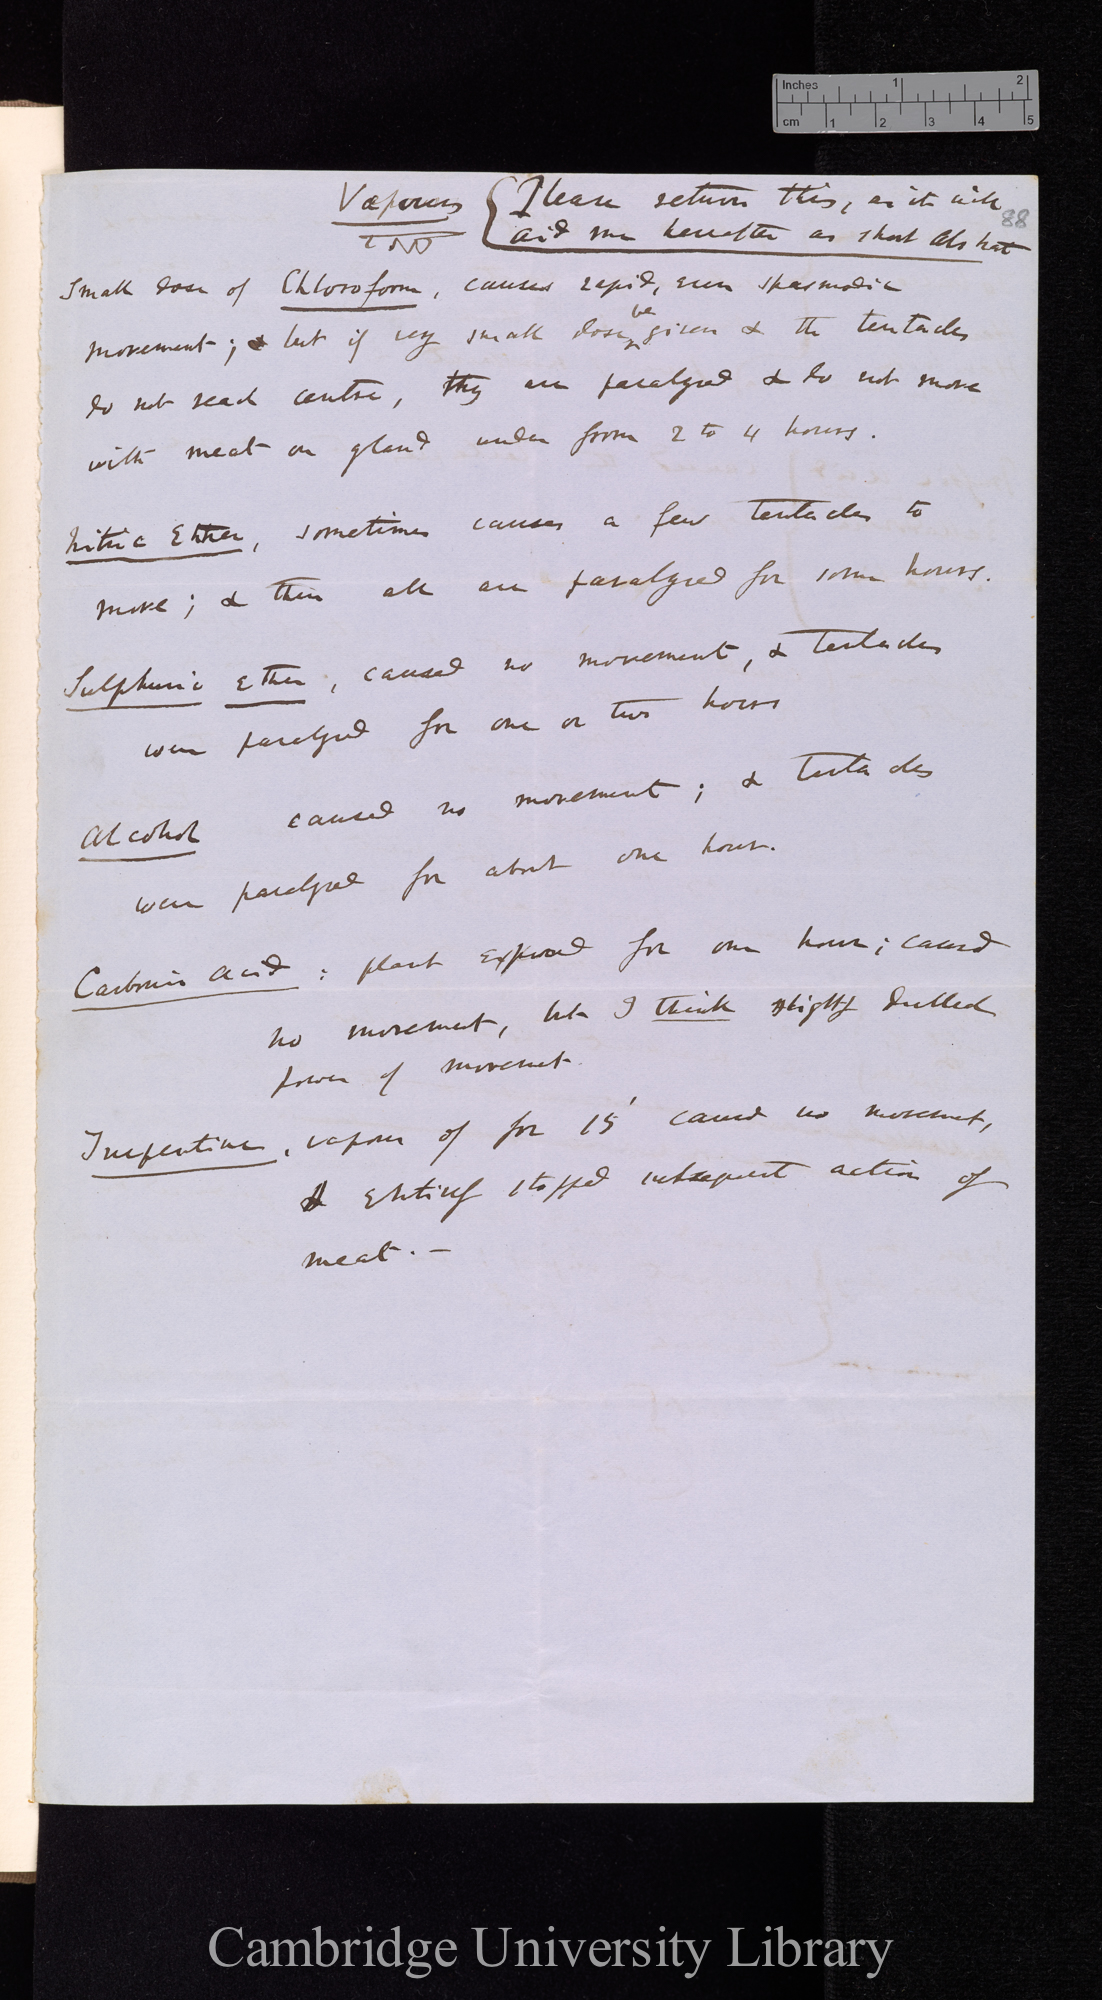 Inches 1 2
cm 1 2 3 4 5
Vapours { Please return this, as it will
aid me hereafter as short abstract
88
Small dose of Chloroform, causes rapid, even spasmodic
movement; & but if very small dose be given & the tentacles
do not reach centre, they are paralysed & do not move
with meat on gland under from 2 to 4 hours.
Nitric Ether, sometimes causes a few tentacles to
move; & then all are paralysed for some hours.
Sulphuric Ether, caused no movement, & tentacles
were paralysed for one or two hours
Alcohol caused no movement; & tentacles
were paralysed for about one hour.
Carbonic acid: plant exposed for one hour; caused
no movement, but I think slightly dulled
power of movement.
Turpentine, vapour of for 15' caused no movement,
& entirely stopped subsequent action of
meat. —
Cambridge University Library